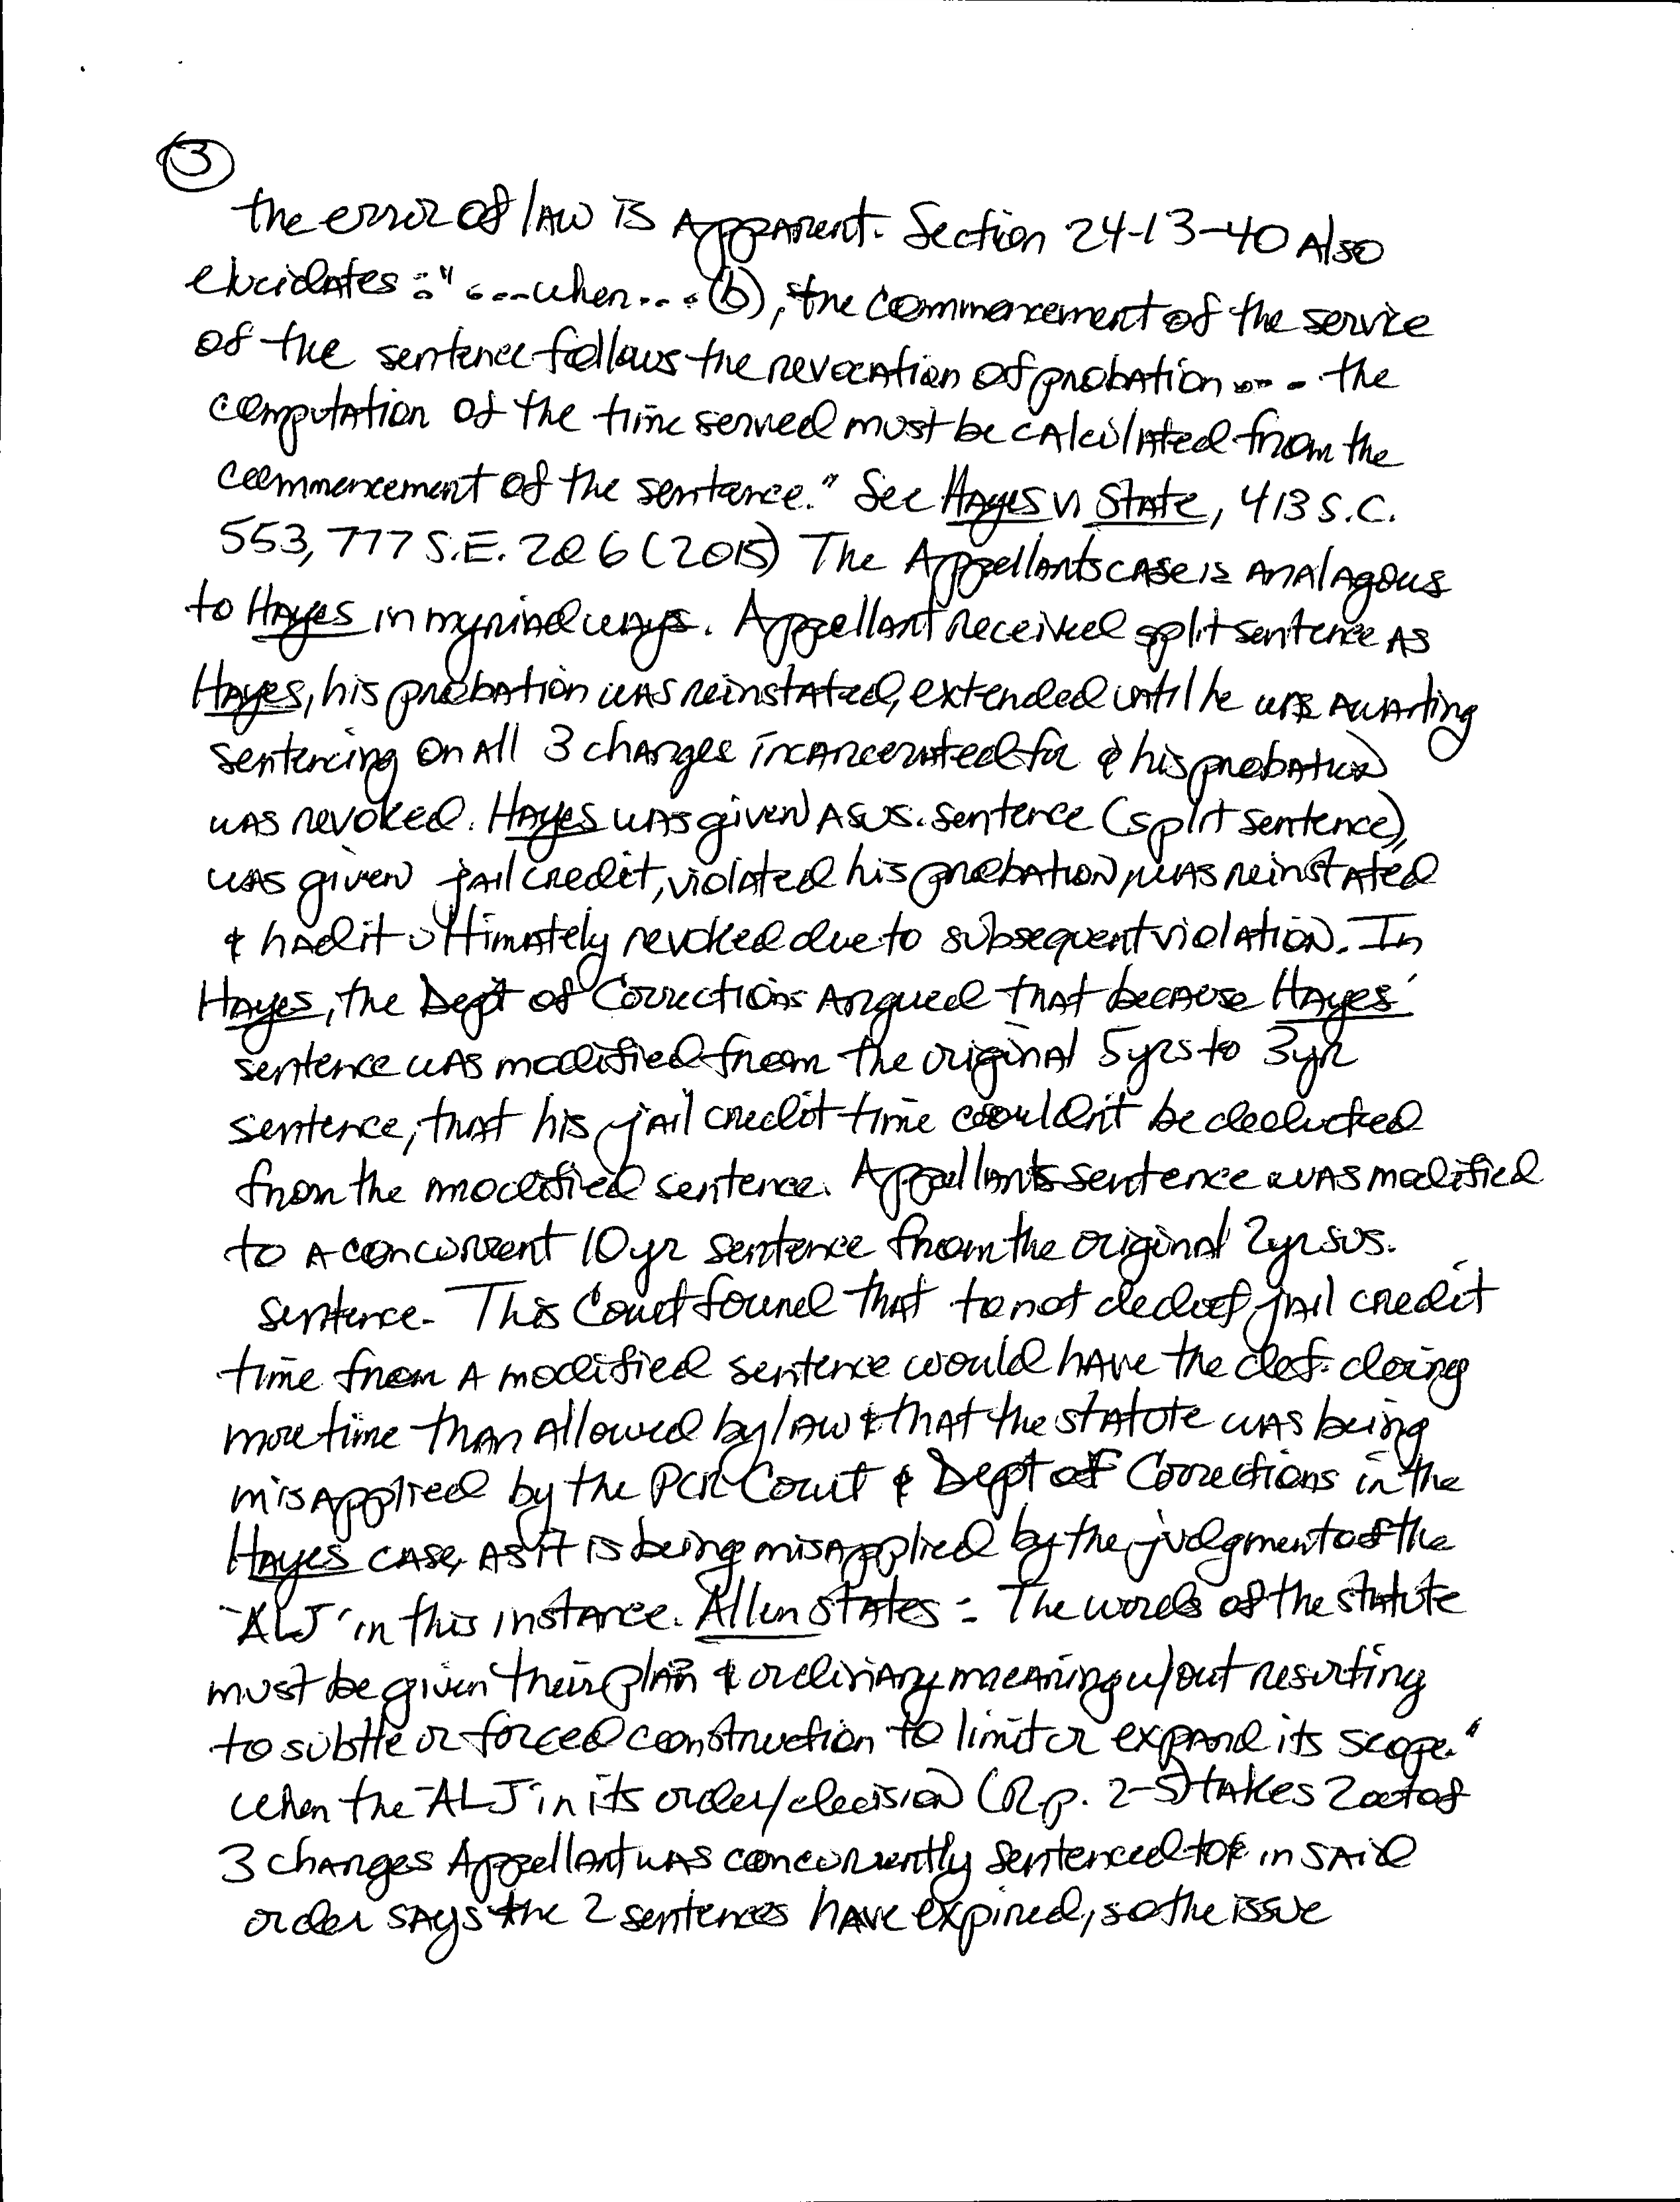 3
the error of law is apparent. Section 24-13-40 Also
elucidates: "...when...(b), the commencement of the service
of the sentence follows the revocation of probation.... the
computation of the time served must be calculated from the
commencement of the sentence." See Hayes v. State, 413 S.C.
553, 777 S.E. 2d 6 (2015) The Appellants case is analagous
to Hayes in myriad ways. Appellant received split sentence as
Hayes, his probation was reinstated, extended until he was awaiting
sentencing on all 3 charges incarcerated for & his probation
was revoked. Hayes was given a sus. sentence (split sentence),
was given jail credit, violated his probation, was reinstated
& had it ultimately revoked due to subsequent violation. In
Hayes, the Dept of Corrections argued that because Hayes'
sentence was modified from the original 5yrs to 3yr
sentence, that his jail credit time couldn't be deducted
from the modified sentence. Appellants sentence was modified
to a concurrent 10 yr sentence from the original 2yr sus.
sentence. This Court found that to not deduct jail credit
time from a modified sentence would have the def. doing
more time than allowed by law & that the statute was being
misapplied by the PCR Court & Dept of Corrections in the
Hayes case, as it is being misapplied by the judgment of the
"ALJ" in this instance. Allen states = The words of the statute
must be given their plain & ordinary meaning w/out resorting
to subtle or forced construction to limit or expand its scope."
When the "ALJ" in its order/decision (R p. 2-5) takes 2 out of
3 charges Appellant was concurrently sentenced to & in said
order says the 2 sentences have expired, so the issue